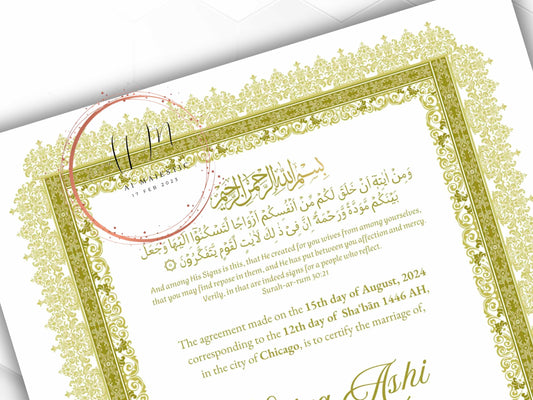 AL MAJESTIC
17 FEB 2023
بِسْمِ اللَّهِ الرَّحْمَٰنِ الرَّحِيمِ
وَمِنْ آيَاتِهِ أَنْ خَلَقَ لَكُم مِّنْ أَنفُسِكُمْ أَزْوَاجًا لِّتَسْكُنُوا إِلَيْهَا وَجَعَلَ
بَيْنَكُم مَّوَدَّةً وَرَحْمَةً إِنَّ فِي ذَٰلِكَ لَآيَاتٍ لِّقَوْمٍ يَتَفَكَّرُونَ
And among His Signs is this, that He created for you wives from among yourselves,
that you may find repose in them, and He has put between you affection and mercy.
Verily, in that are indeed signs for a people who reflect.
Surah-ar-rum 30:21
The agreement made on the 15th day of August, 2024
corresponding to the 12th day of Sha'bān 1446 AH,
in the city of Chicago, is to certify the marriage of,
Ashi